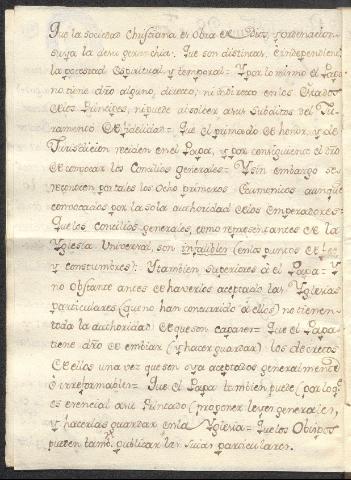 Que la Sociedad Christiana es Obra de Dios, y ordenacion
suya la de su gerarchia. Que son distintas, é independientes
la potestad Espiritual, y temporal = Y por lo mismo el Papa
no tiene dño alguno, directo, ni indirecto en los Estados
de los Principes, ni puede absolver a sus Subditos del Ju-
ramento de fidelidad = Que el primado de honor, y de
Jurisdicion reciden en el Papa, y por consiguiente el dño
de convocar los Concilios generales = Y sin embargo se re-
conocen por tales los Ocho primeros Ecumenicos aunque
convocados por la sola authoridad de los Emperadores =
Que los concilios generales, como representantes de la
Yglesia Universal, son infalibles (en los puntos de fee
y constumbres): Y tambien superiores á el Papa = Y
no Obstante antes de haverlos aceptado las Yglesias
particulares (que no han concurrido á ellos) no tienen
toda la authoridad de que son capaces = Que el Papa
tiene dño de embiar (y hacer guardar) los decretos
de ellos una vez que son ya aceptados generalmente
é irreformables = Que el Papa tambien puede (por lo q.e
es esencial a su Primado) proponer leyes generales,
y hacerlas guardar en la Yglesia = Que los Obispos
pueden tamb.n publicar las suias particulares.